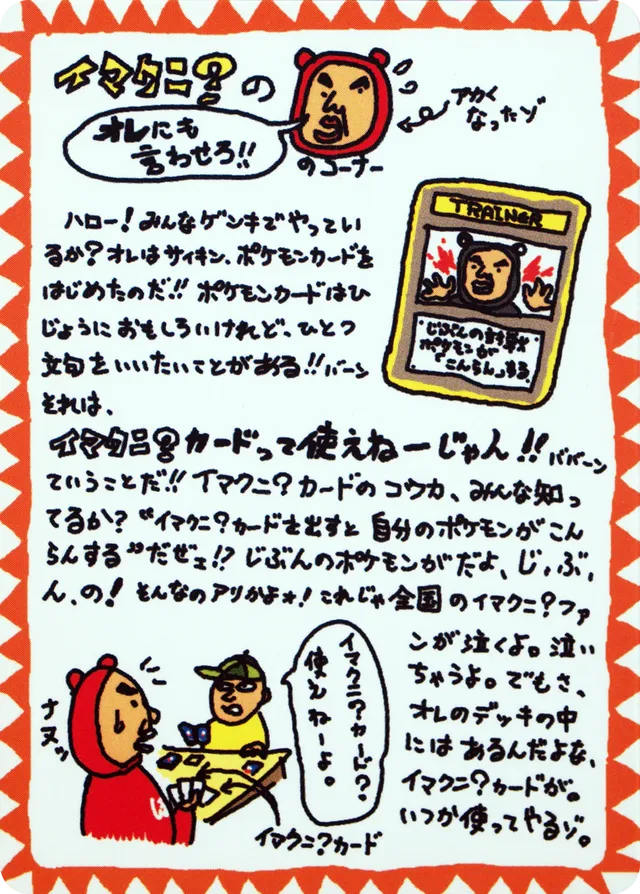 イマクニ?の
オレにも
言わせろ!!
のコーナー
アカく
なったゾ
ハロー!みんなゲンキでやってい
るか?オレはサイキン、ポケモンカードを
はじめたのだ!!ポケモンカードはひ
じょうにおもしろいけれど、ひとつ
文句をいいたいことがある!!バーン
それは、
TRAINER
じぶんの対戦
ポケモンが
"こんらん"する。
イマクニ?カードって使えねーじゃん!!ババーン
ていうことだ!!イマクニ?カードのコウカ、みんな知っ
てるか?"イマクニ?カードを出すと自分のポケモンがこん
らんする"だぜェ!?じぶんのポケモンがだよ、じ、ぶ、
ん、の!そんなのアリかよ★!これじゃ全国のイマクニ?ファ
ンが泣くよ。泣い
ちゃうよ。でもさ、
オレのデッキの中
にはあるんだよな、
イマクニ?カードが。
いつか使ってやるゾ。
ナヌッ
イマクニ?カード?
使えねーよ。
イマクニ?カード